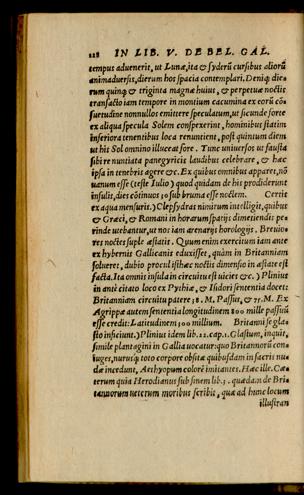 128 IN LIB. V. DE BEL. GAL.
tempus aduenerit, ut Lunæ, ita & syderũ cursibus aliorũ
animaduersis, dierum hos spacia contemplari. Deniq; die-
rum quinq; & triginta magnæ huius, & perpetuæ noctis
transacto iam tempore in montium cacumina ex eorũ cõ
suetudine nonnullos emittere speculatum, ut secunde sorte
ex aliqua specula Solem conspexerint, hominibus statim
inferiora tenentibus loca renuntient, post quintum diem
ut his Sol omnino illuceat fore. Tunc uniuersos ut fausta
sibi renuntiata panegyricis laudibus celebrare, & hæc
ipsa in tenebris agere &c. Ex quibus omnibus apparet, nõ
uanum esse (teste Iulio) quod quidam de his prodiderunt
insulis, dies cõtinuos 30 sub bruma esse noctem. Certis
ex aqua mensuris.) Clepsydras nimirum intelligit, quibus
& Græci, & Romani in horarum spatijs dimetiendis pe-
rinde utebantur, ut nos iam arenarijs horologijs. Breuio
res noctes supple æstatis. Quum enim exercitum iam ante
ex hybernis Gallicanis eduxisset, quàm in Britanniam
solueret, dubio procul isthæc noctis dimensio in æstate est
facta. Ita omnis insula in circuitu est uicies &c.) Plinius
in antè citato loco ex Pythiæ, & Isidori sententia docet:
Britanniam circuitu patere 38. M. Passuũ, & 75. M. Ex
Agrippæ autem sententia longitudinem 800 mille passuũ
esse credit: Latitudinem 300 millium. Britanni se gla-
sto inficiunt.) Plinius idem lib. 22. cap. 1. Glastum, inquit,
simile plantagini in Gallia uocatur: quo Britannorũ con-
iuges, nurusq; toto corpore obsitæ quibusdam in sacris nu-
dæ incedunt, Aethyopum colorẽ imitantes. Hæc ille. Cæ-
terum quia Herodianus sub finem lib. 3. quædam de Bri-
tannorum ueterum moribus scribit, quæ ad hunc locum
illustran